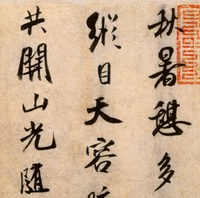 秋暑憩多
縱目天容
共開山光隨